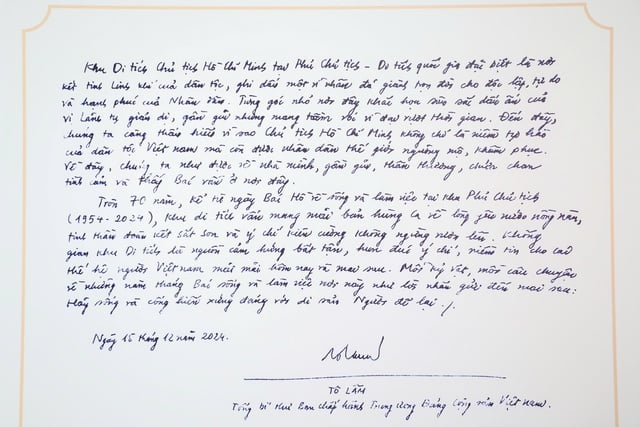 Khu Di tích Chủ tịch Hồ Chí Minh tại Phủ Chủ tịch - Di tích quốc gia đặc biệt là nơi
kết tinh linh khí của dân tộc, ghi dấu một vĩ nhân đã giành trọn đời cho độc lập, tự do
và hạnh phúc của Nhân dân. Từng góc nhỏ nơi đây khắc họa sâu sắc dấu ấn của
vị Lãnh tụ giản dị, gần gũi nhưng mang tầm vóc vĩ đại vượt thời gian. Đến đây,
chúng ta càng thấu hiểu vì sao Chủ tịch Hồ Chí Minh không chỉ là niềm tự hào
của dân tộc Việt Nam mà còn được nhân dân thế giới ngưỡng mộ, khâm phục.
Về đây, chúng ta như được về nhà mình, gần gũi, thân thương, chứa chan
tình cảm và thấy Bác vẫn ở nơi đây.
Tròn 70 năm, kể từ ngày Bác Hồ về sống và làm việc tại Khu Phủ Chủ tịch
(1954-2024), Khu di tích vẫn mang mãi bản hùng ca về lòng yêu nước nồng nàn,
tinh thần đoàn kết sắt son và ý chí kiên cường không ngừng vươn lên. Không
gian Khu Di tích là nguồn cảm hứng bất tận, hun đúc ý chí, niềm tin cho các
thế hệ người Việt Nam mãi mãi hôm nay và mai sau. Mỗi kỷ vật, mỗi câu chuyện
về những năm tháng Bác sống và làm việc nơi này như lời nhắn gửi đến mai sau:
Hãy sống và cống hiến xứng đáng với di sản Người để lại ./.
Ngày 15 tháng 12 năm 2024.
TÔ LÂM
Tổng Bí thư Ban chấp hành Trung ương Đảng Cộng sản Việt Nam.